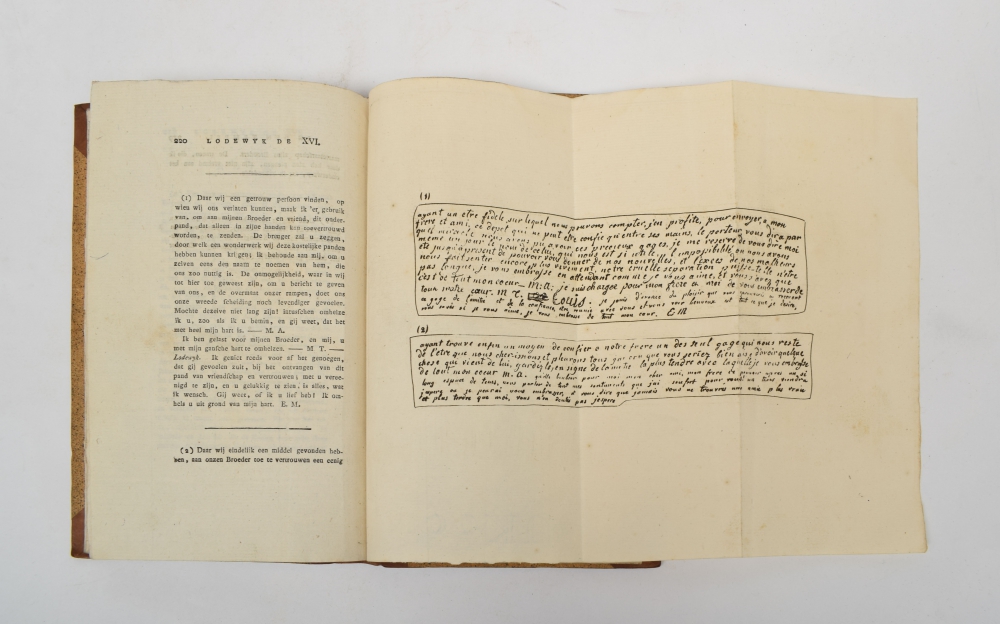 220 LODEWYK DE XVI.
(1) Daar wij een getrouw persoon vinden, op
wien wij ons verlaten kunnen, maak ik 'er gebruik
van, om aan mijnen Broeder en vriend, dit onder-
pand, dat alleen in zijne handen kan toevertrouwd
worden, te zenden. De brenger zal u zeggen,
door welk een wonderwerk wij deze kostelijke panden
hebben kunnen krigen; ik behoude aan mij, om u
zelven eens den naam te noemen van hem, die
ons zoo nuttig is. De onmogelijkheid, waar in wij
tot hier toe geweest zijn, om u bericht te geven
van ons, en de overmaat onzer rampen, doet ons
onze wreede scheiding noch levendiger gevoelen.
Mochte dezelve niet lang zijn! intusschen omhelze
ik u, zoo als ik u bemin, en gij weet, dat het
met heel mijn hart is. — M. A.
Ik ben gelast voor mijnen Broeder, en mij, u
met mijn gansche hart te omhelzen. — M T. —
Lodewyk. Ik geniet reeds voor af het genoegen,
dat gij gevoelen zult, bij het ontvangen van dit
pand van vriendschap en vertrouwen; met u veree-
nigd te zijn, en u gelukkig te zien, is alles, wat
ik wensch. Gij weet, of ik u lief heb! Ik om-
hels u uit grond van mijn hart. E. M.
(2) Daar wij eindelijk een middel gevonden heb-
ben, aan onzen Broeder toe te vertrouwen een eenig
(1)
ayant un etre fidele, sur lequel nous pouvons compter, j'en profite, pour envoyer, a mon
frere et ami, ce depot qui ne peut etre confie qu'entre ses mains, le porteur vous dira par
quel miracle nous avons pu avoir ces precieux gages, je me reserve de vous dire moi
meme un jour le nom de celui, qui nous est si utile, l'impossibilité, ou nous avons
ete jusqu'apresent de pouvoir vous donner de nos nouvelles, et l'exces de nos malheurs
nous fait sentir encore plus vivement, notre cruelle separation puisse-t-elle n'etre
pas longue, je vous embrasse en attendant comme je vous aime, et vous savez que
c'est de tout mon coeur. M.A; je suis chargée pour mon frere et moi de vous embrasser de
tout notre cœur. m. T. Louis. je jouis d'avance du plaisir que vous
gage de l'amitie et de la confiance, etre reunie avec vous et vous voir heureux est tout ce que je desire,
vous savez si je vous aime, je vous embrasse de tout mon cœur. E M
(2)
ayant trouvé enfin un moyen de confier a notre frere un des seul gage qui nous reste
de l'etre que nous cherissions et pleurons tous j'ai cru que vous seriez bien aise d'avoir quelque
chose qui vient de lui, gardez le, en signe de l'amitie la plus tendre avec laquelle je vous embrasse
de tout mon coeur M. A. quelle bonheur pour moi mon cher ami, mon frere de pouvoir apres un si
long espace de tems, vous parler de tout mes sentiments que j'ai souffert pour vous un tems viendra
j'espere ou je pourai vous embrasser, et vous dire que jamais vous ne trouverez une amie plus vraie
et plus tendre que moi, vous n'en doutez pas j'espere